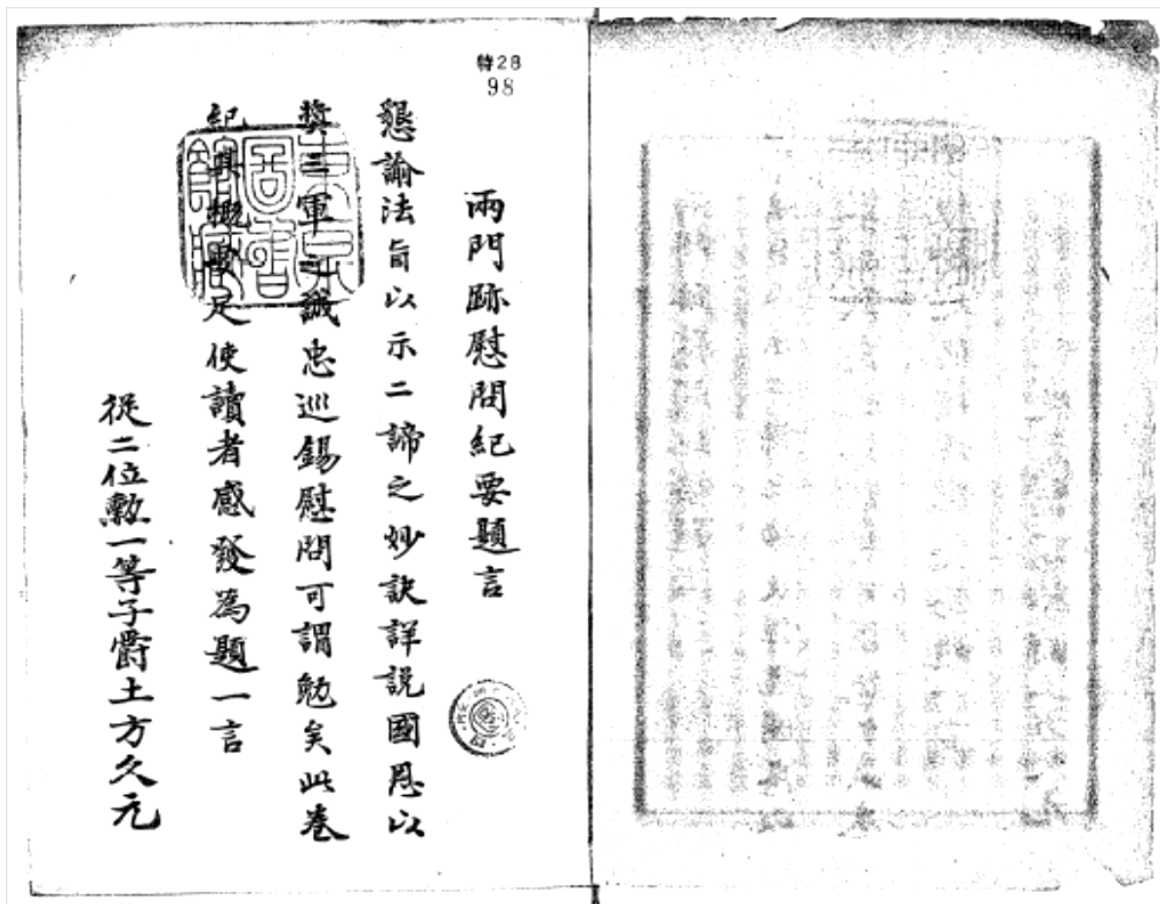 特28
98
兩門跡慰問紀要題言
懇諭法旨以示二諦之妙訣詳説國恩以
奬三軍之誠忠巡錫慰問可謂勉矣此卷
紀其概要足使讀者感發為題一言
從二位勲一等子爵土方久元
東京圖書館藏